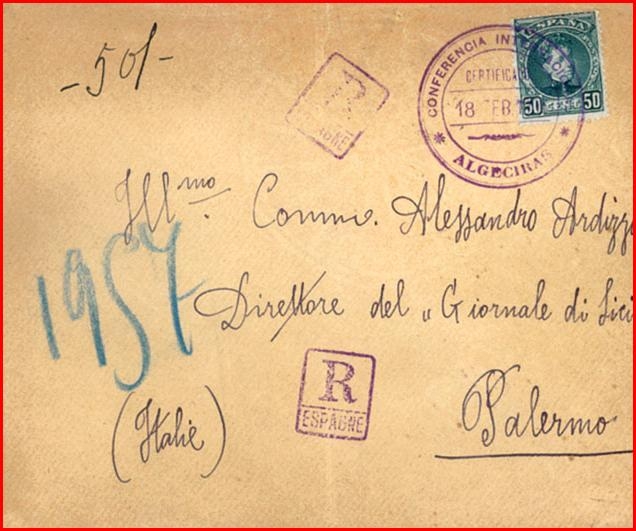 -501-
R
CONFERENCIA
CERTIFICA
18 FEB
ALGECIRAS
ESPAÑA
50 CENT. 50
Ill.mo Commo. Alessandro Ardizz
1957
Direttore del „Giornale di Sici
R
ESPAGNE
(Italie)
Palermo